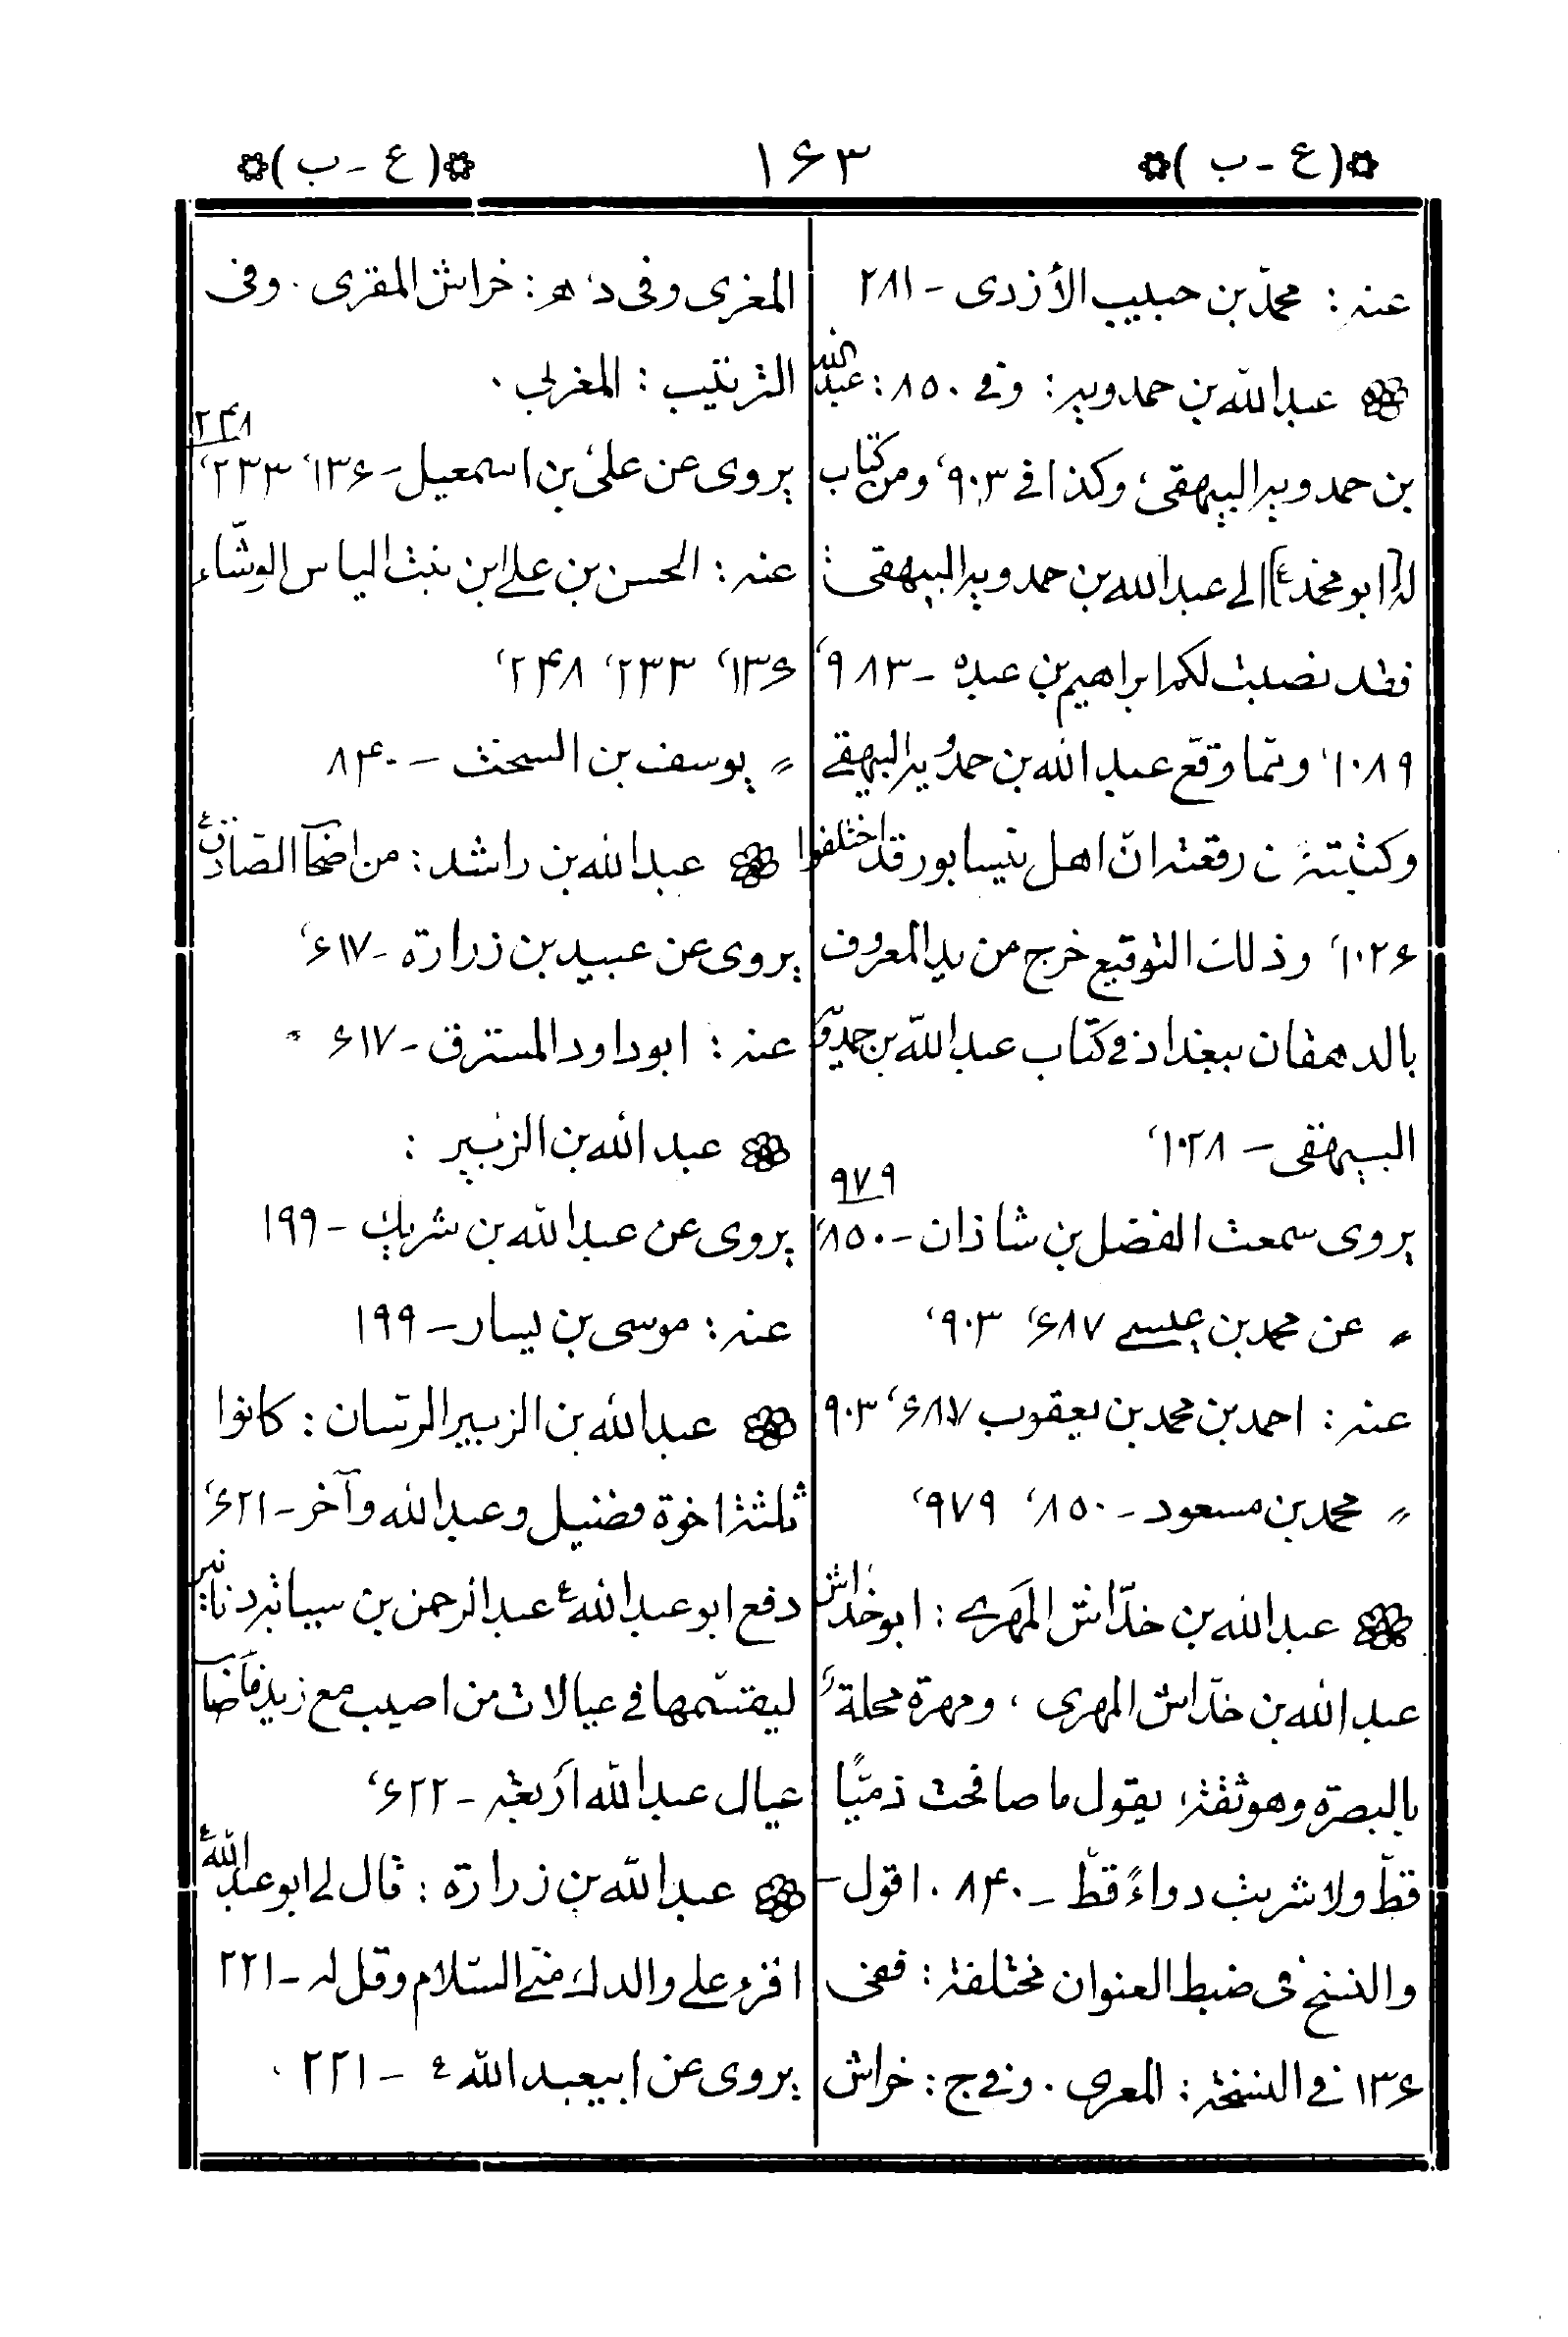 ❁(ع - ب)❁ ١۶٣ ❁(ع - ب)❁
عنه : محمّد بن حبيب الأزدى - ٢٨١
❁ عبد اللّه بن حمدويه : وفى ٨٥٠ : عبد اللّه
بن حمدويه البيهقى، وكذا فى ٩٠٣، ومن كتاب
له [ابو محمّد ع] الى عبد اللّه بن حمدويه البيهقى :
فقد نصبت لكم ابراهيم بن عبده - ٩٨٣،
١٠٨٩، وممّا وقّع عبد اللّه بن حمدويه البيهقى
وكتبته ن رقعته انّ اهل نيسابور قد اختلفوا
١٠٢۶، وذلك التوقيع خرج من يد المعروف
بالدهقان ببغداد فى كتاب عبد اللّه بن حمدويه
البيهقى - ١٠٢٨،
يروى سمعت الفضل بن شاذان - ٨٥٠، ٩٧٩
〃 عن محمد بن عيسى ۶٨٧، ٩٠٣،
عنه : احمد بن محمد بن يعقوب ۶٨٧، ٩٠٣
〃 محمد بن مسعود - ٨٥٠، ٩٧٩،
❁ عبد اللّه بن خدّاش المَهرى : ابو خداش
عبد اللّه بن خدّاش المهرى ، ومهرة محلة
بالبصرة وهو ثقة، يقول ما صافحت ذمّيًّا
قطّ ولا شربت دواءً قطّ - ٨۴٠ . اقول -
والنسخ فى ضبط العنوان مختلفة : ففى
١٣۶ فى النسخة : المعرى . وفى ج : خراش
المغرى وفى د، ه : خراش المقرى . وفى
الترتيب : المغربى .
يروى عن علىّ بن اسمعيل - ١٣۶، ٢٣٣، ٢۴٨
عنه : الحسن بن على ابن بنت الياس الوشّاء
١٣۶، ٢٣٣، ٢۴٨،
〃 يوسف بن السخت - ٨۴٠
❁ عبد اللّه بن راشد : من اصحاب الصّادق ع
يروى عن عبيد بن زرارة - ۶١٧،
عنه : ابو داود المسترق - ۶١٧
❁ عبد اللّه بن الزبير :
يروى عن عبد اللّه بن شريك - ١٩٩
عنه : موسى بن يسار - ١٩٩
❁ عبد اللّه بن الزبير الرسّان : كانوا
ثلثة اخوة فضيل وعبد اللّه وآخر - ۶٢١،
دفع ابو عبد اللّه ع عبد الرحمن بن سيابه دنانير
ليقسّمها فى عيالات من اصيب مع زيد فاصاب
عيال عبد اللّه اربعة - ۶٢٢،
❁ عبد اللّه بن زرارة : قال لى ابو عبد اللّه ع
اقرء على والدك منّى السّلام وقل له - ٢٢١
يروى عن ابيعبد اللّه ع - ٢٢١ .